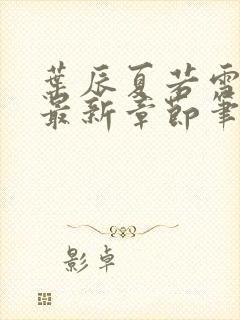 葉辰夏若雪
最新章節筆
影卓